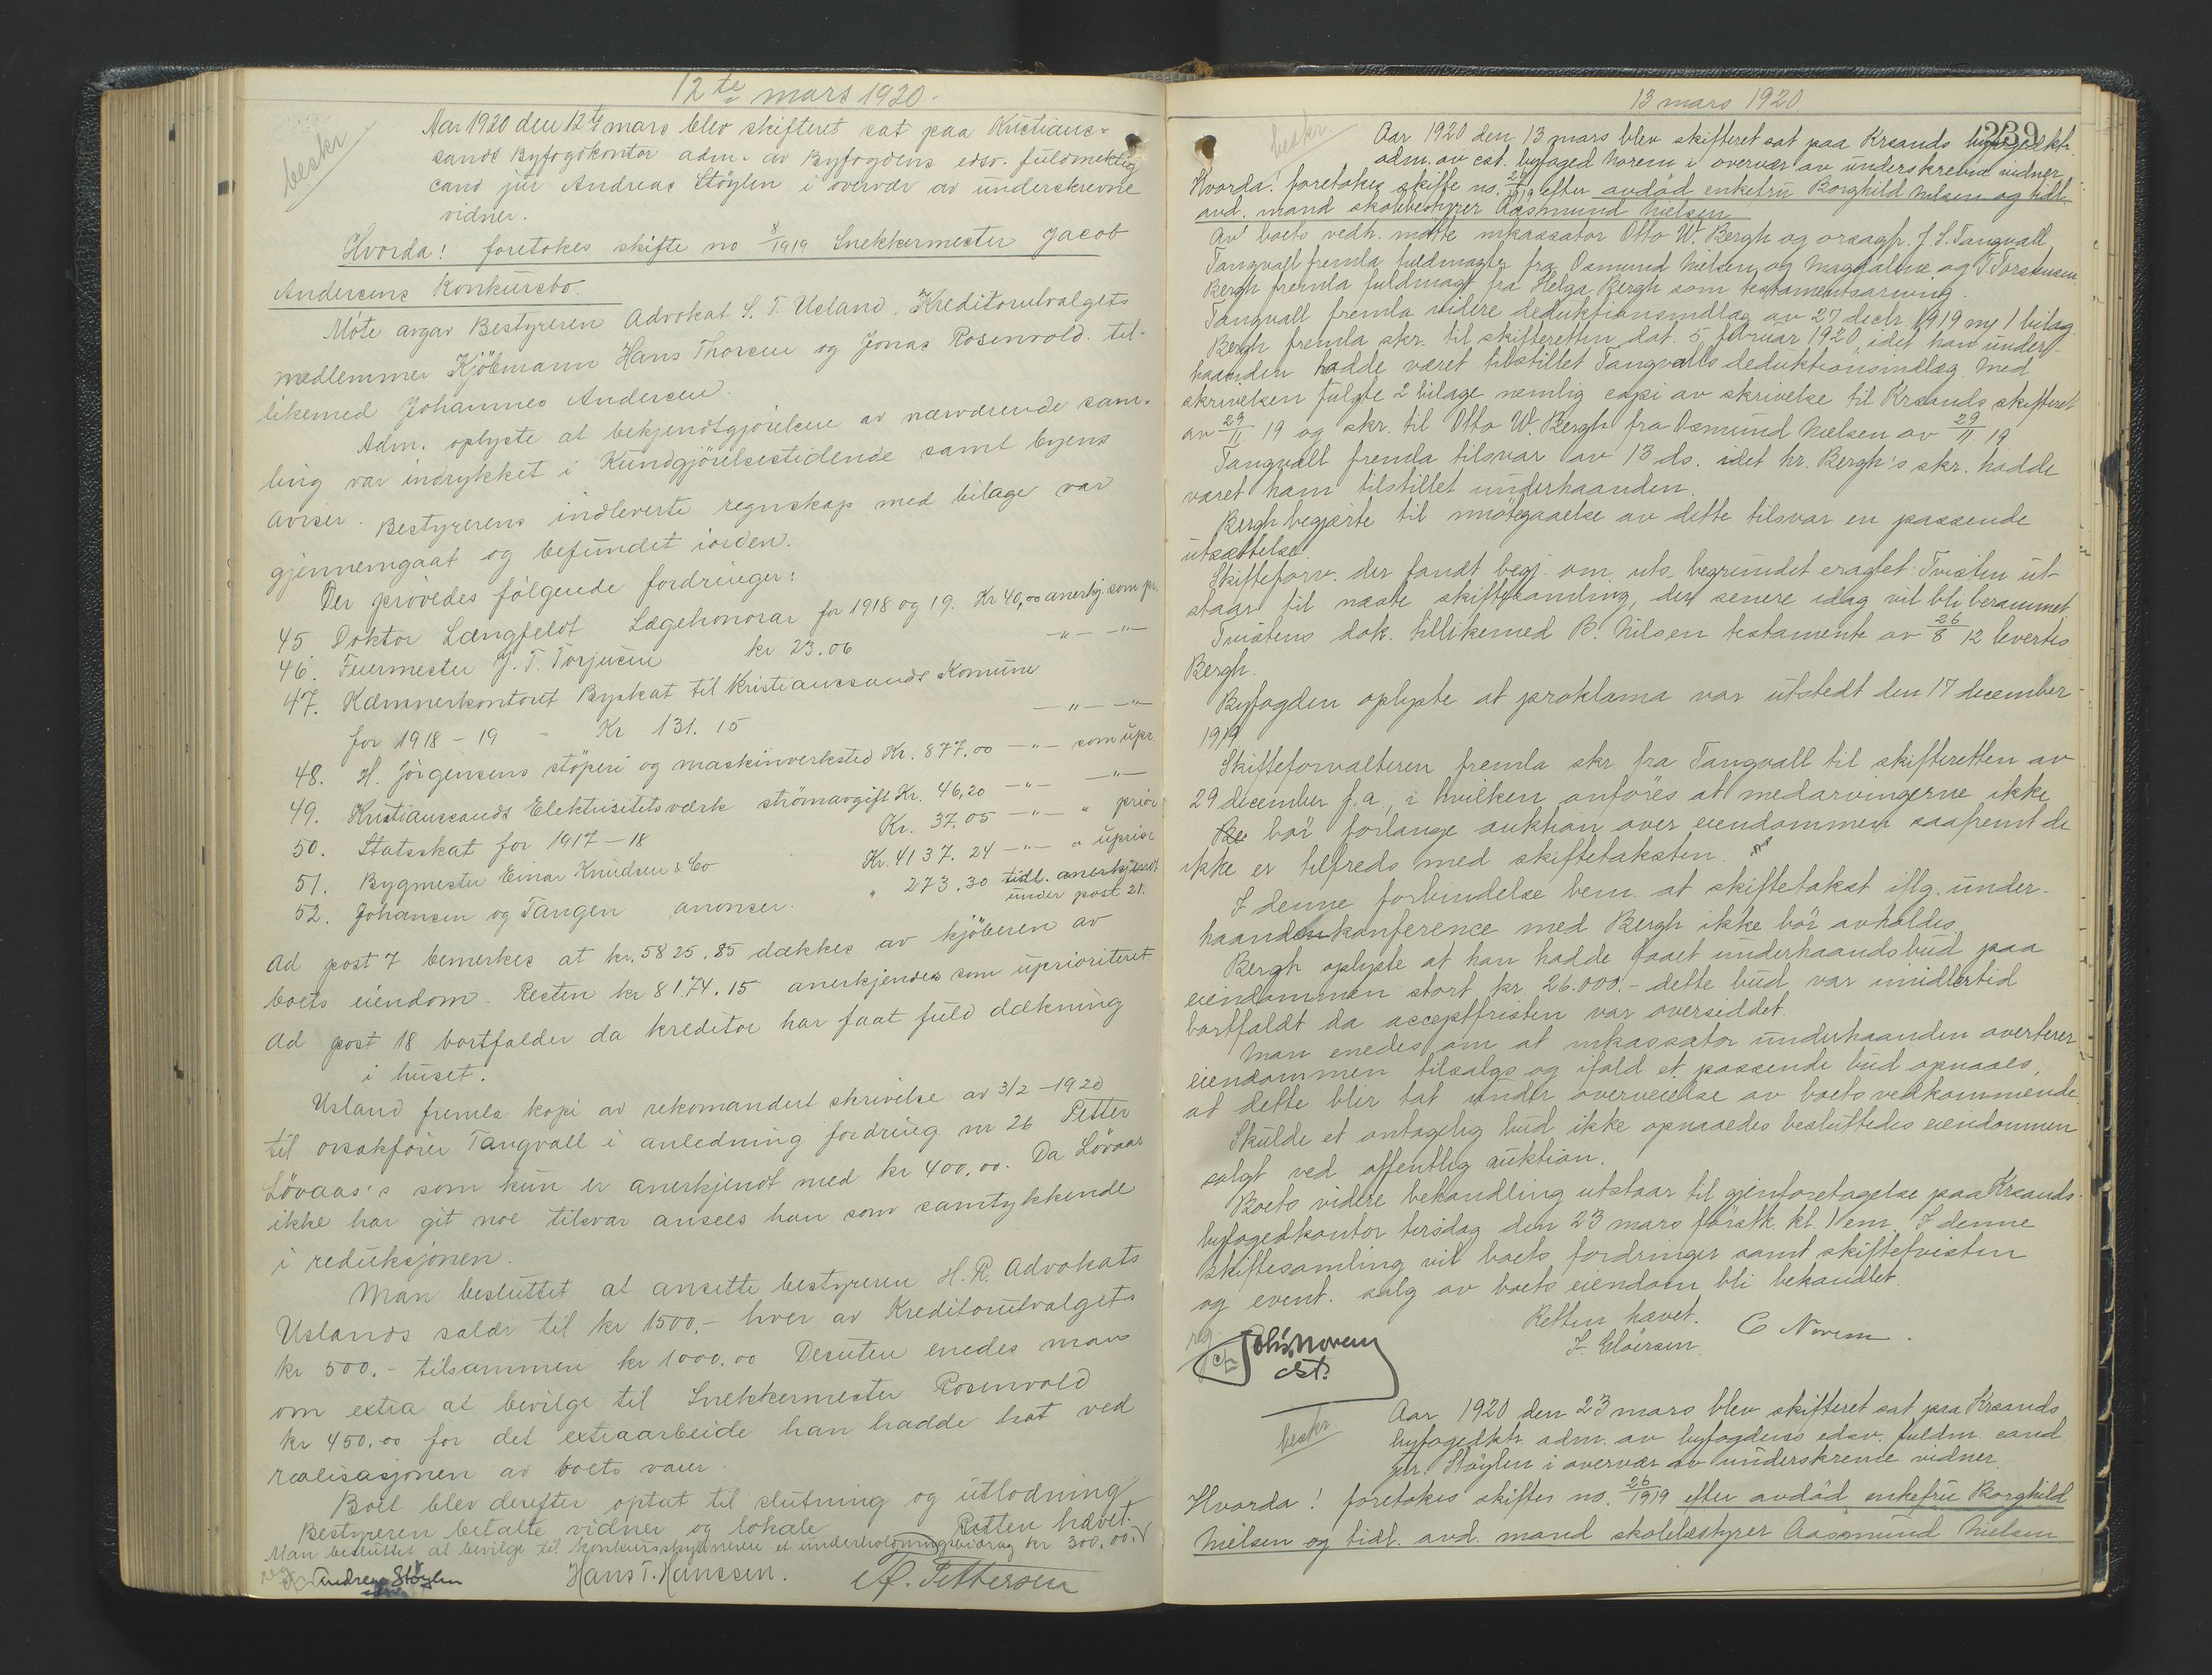 12te mars 1920.
beskr
Aar 1920 den 12te mars blev skifteret sat paa Kristians-
sands Byfogdkontor adm. av Byfogdens edsv. fuldmektig
cand jur Andreas Stöylen i overvær av underskrevne
vidner.
Hvorda! foretokes skifte no 8/1919 Snekkermester Jacob
Andersens Konkursbo.
Möte avgav Bestyreren Advokat S. T. Usland. Kreditorutvalgets
medlemmer Kjöbmann Hans Thorsen og Jonas Rosenvold. til-
likemed Johannes Andersen.
Adm. oplyste at bekjendtgjörelsen av nærværende sam-
ling var indrykket i Kundgjörelsestidende samt byens
aviser. Bestyrerens indleverte regnskap med bilage var
gjennemgaat og befundet iorden.
Der prövedes fölgende fordringer:
45 Doktor Langfeldt Lægehonorar for 1918 og 19. Kr 40,00 anerkj. som pr.
46. Feiermester J. T. Torjusen kr 23.06 —"— —"—
47. Kæmnerkontoret Byskat til Kristianssands Komune
for 1918 – 19 - Kr 131.15 —"— —"—
48. H. Jörgensens stöperi og maskinverksted Kr. 877.00 —"— som upr.
49. Kristianssands Elektrisitetsværk strömavgift Kr. 46,20 —"— —"—
50. Statsskat for 1917–18 Kr. 37.05 —"— " prior
51. Bygmester Einar Knudsen & Co Kr. 4137.24 —"— " uprior
52. Johansen og Tangen anonser. " 273.30 tidl. anerkjendt
under post 21.
Ad post 7 bemerkes at kr. 5825.85 dækkes av kjöberen av
boets eiendom. Resten kr 8174.15 anerkjendes som uprioritert
Ad post 18 bortfalder da kreditor har faat fuld dækning
i huset.
Usland fremla kopi av rekomandert skrivelse av 3/2 – 1920
til orsakförer Tangvall i anledning fordring nr 26 Petter
Lövaas's som kun er anerkjendt med kr 400,00. Da Lövaas
ikke har git noe tilsvar ansees han som samtykkende
i reduksjonen.
Man besluttet at ansette bestyreren H.R. Advokats
Uslands salær til kr 1500,- hver av Kreditorutvalgets
kr 500.- tilsammen kr 1000.00 Desuten enedes man
om extra at bevilge til Snekkermester Rosenvold
kr 450.00 for det extraarbeide han hadde hat ved
realisasjonen av boets varer.
Boet blev derefter optat til slutning og utlodning
Bestyreren betalte vidner og lokale Retten hævet.
Man besluttet at bevilge til konkursskyldneren et underholdningsbidrag kr 300,00.
Andreas Stöylen Hans T. Hanssen. A. Pettersen
13 mars 1920
239
beskr.
Aar 1920 den 13 mars blev skifteret sat paa Krsands byfogedktr.
adm. av cst. byfoged Norem i overvær av underskrevne vidner.
Hvorda! foretokes skifte no. 26/1919 efter avdöd enkefru Borghild Nielsen og tidl.
avd. mand skolebestyrer Aasmund Nielsen
Av boets vedk. mötte inkassator Otto W. Bergh og orsagf. J. S. Tangvall.
Tangvall fremla fuldmagter fra Osmund Nielsen og Magdalene og T. Torstensen.
Bergh fremla fuldmagt fra Helga Bergh som testamentsarving.
Tangvall fremla videre deduktionsindlæg av 27 decbr. 1919 m/ 1 bilag.
Bergh fremla skr. til skifteretten dat. 5 februar 1920, idet han under-
haanden hadde været tilstillet Tangvalls deduktionsindlæg. Med
skrivelsen fulgte 2 bilage nemlig copi av skrivelse til Krsands skifteret
av 29/11 19 og skr. til Otto W. Bergh fra Osmund Nielsen av 29/11 19
Tangvall fremla tilsvar av 13 ds. idet hr. Bergh's skr. hadde
været ham tilstillet underhaanden.
Bergh begjærte til imötegaaelse av dette tilsvar en passende
utsættelse.
Skifteforv. der fandt begj. om uts. begrundet eragtet: Tvisten ut-
staar til næste skiftesamling, der senere idag vil bli berammet.
Tvistens dok. tillikemed B. Nilsen testamente av 26/8 12 levertes
Bergh.
Byfogden oplyste at proklama var utstedt den 17 december
1919
Skifteforvalteren fremla skr. fra Tangvall til skifteretten av
29 december f.a., i hvilken anföres at medarvingerne ikke
bör forlange auktion over eiendommen saafremt de
ikke er tilfreds med skiftetaksten.
I denne forbindelse bem. at skiftetakst iflg. under-
haandenkonference med Bergh ikke bör avholdes.
Bergh oplyste at han hadde faaet underhaandsbud paa
eiendommen stort kr. 26.000.- dette bud var imidlertid
bortfaldt da acceptfristen var oversiddet.
Man enedes om at inkassator underhaanden averterer
eiendommen tilsalgs og ifald et passende bud opnaaes,
at dette blir tat under overveielse av boets vedkommende.
Skulde et antagelig bud ikke opnaaedes besluttedes eiendommen
solgt ved offentlig auktion.
Boets videre behandling utstaar til gjenforetagelse paa Krsands
byfogedkontor tirsdag den 23 mars förstk. kl. 1 em. I denne
skiftesamling vil boets fordringer samt skiftetvisten
og event. salg av boets eiendom bli behandlet.
Retten hævet.
Johs. Norem
cst.
C Norem.
Aar 1920 den 23 mars blev skifteret sat paa Krsands
beskr
byfogedktr. adm. av byfogdens edsv. fuldm. cand.
jur. Stöylen i overvær av underskrevne vidner.
Hvorda! foretokes skifte no. 26/1919 efter avdöd enkefru Borghild
Nielsen og tidl. avd. mand skolebestyrer Aasmund Nielsen